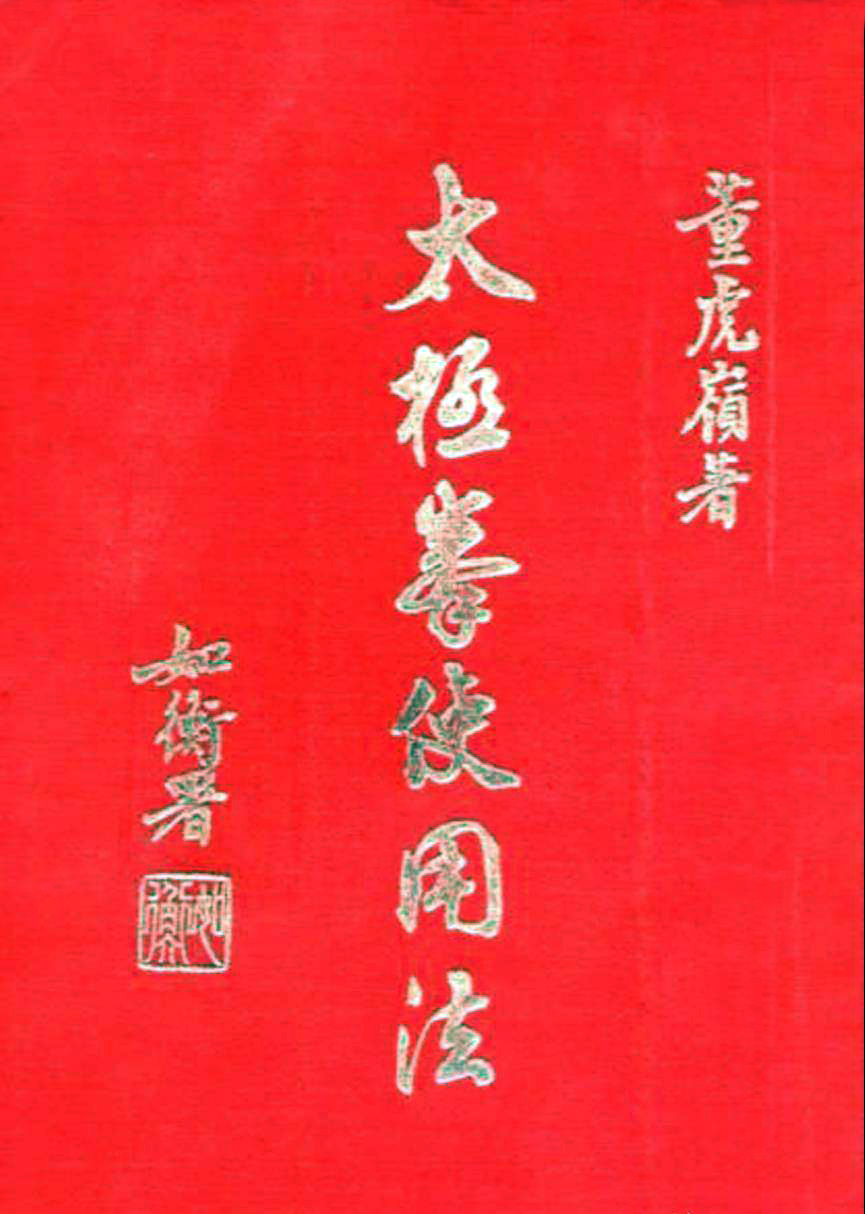 董虎嶺著
太極拳使用法
如衡署
如衡